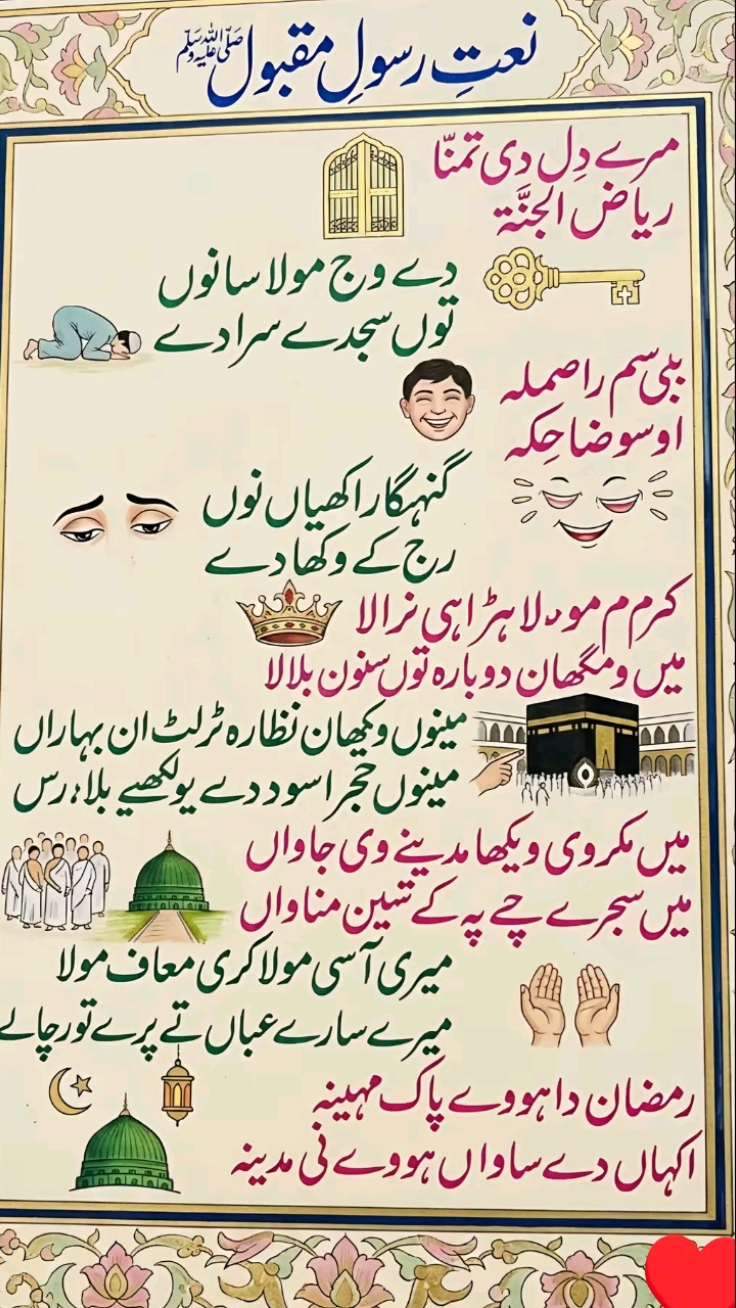 نعتِ رسولِ مقبول صلی اللہ علیہ وسلم
مرے دِل دی تمنّا
ریاض الجنَّة
دے وچ مولا سانوں
توں سجدے سرا دے
بی سم راصملہ
اوسو ضاحِکہ
گنہگار اکھیاں نوں
رج کے وکھا دے
کرم م مولا ہڑا ہی نرالا
میں ومگھان دوبارہ توں سنون بلالا
مینوں وکھان نظارہ ٹرلٹ ان بہاراں
مینوں حجر اسود دے یولکھیے بلا رس
میں مکر وی ویکھا مدینے وی جاواں
میں سجرے چے پہ کے تسین مناواں
میری آسی مولا کری معاف مولا
میرے سارے عباں تے پرے تورچالے
رمضان دا ہووے پاک مہینہ
اکہاں دے ساواں ہووے نی مدینہ